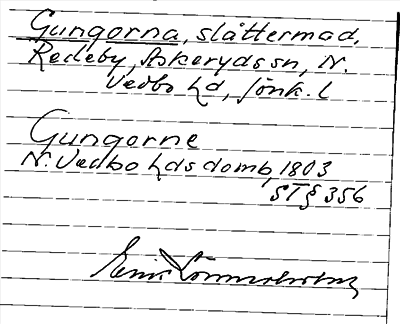 Gungorna, slåttermad,
Redeby, Askeryds sn, N.
Vedbo hd, Jönk. l
Gungorne
N. Vedbo hds domb, 1803
ST § 356